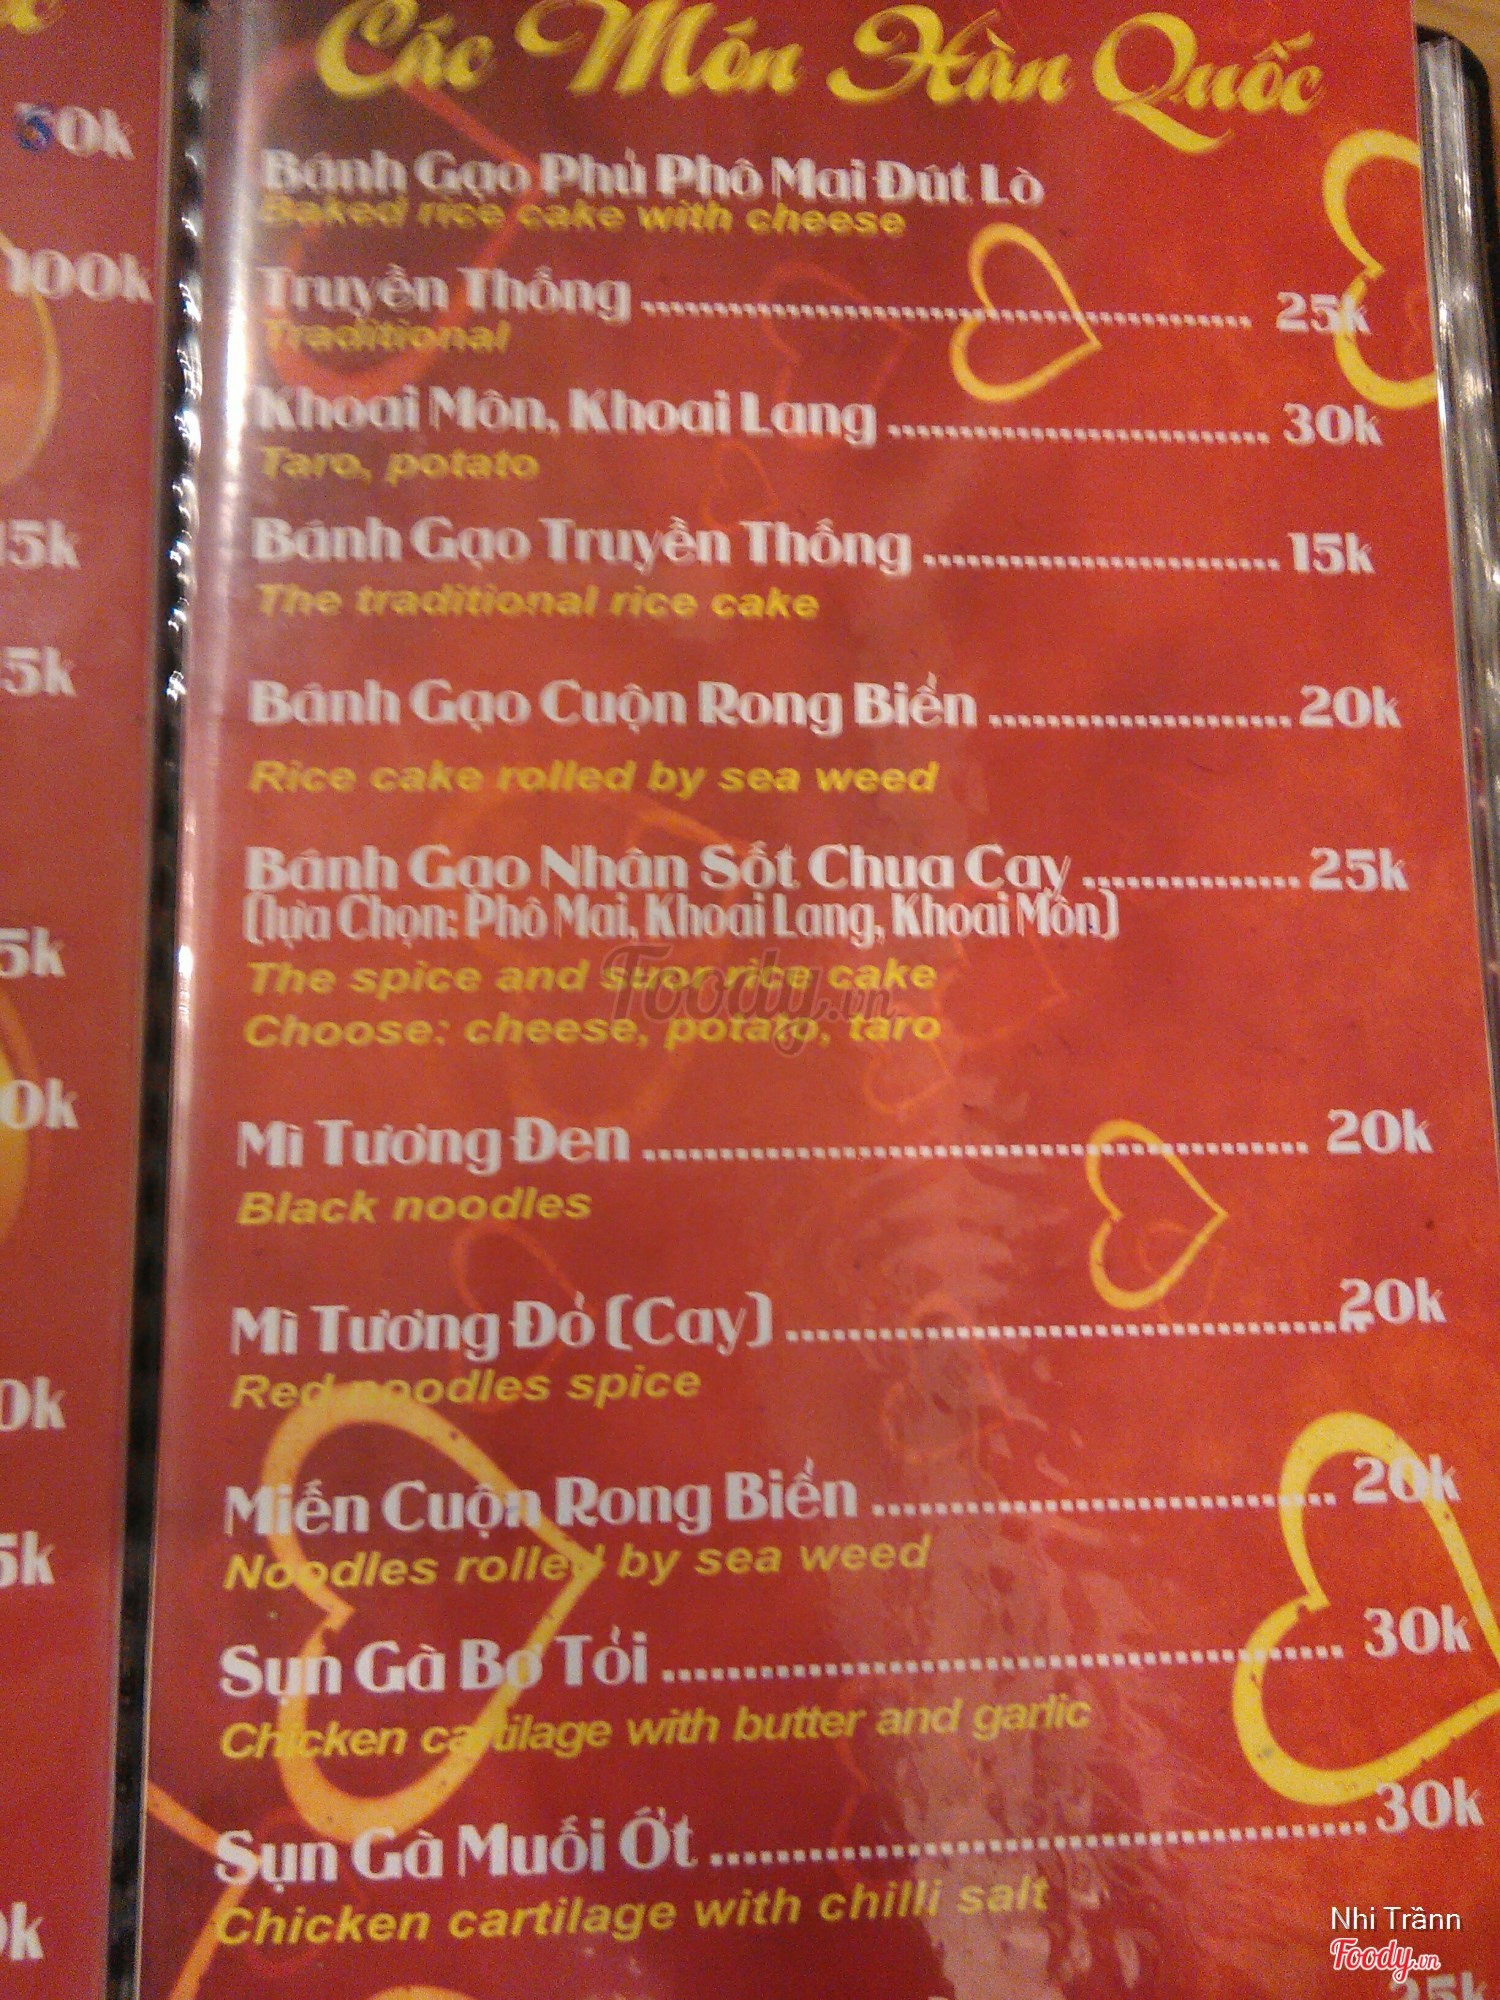 Các Món Hàn Quốc
50k
100k
Bánh Gạo Phủ Phô Mai Đút Lò
Baked rice cake with cheese
Truyền Thống ........ 25k
Traditional
Khoai Môn, Khoai Lang ........ 30k
Taro, potato
Bánh Gạo Truyền Thống ........ 15k
The traditional rice cake
Bánh Gạo Cuộn Rong Biển ........ 20k
Rice cake rolled by sea weed
Bánh Gạo Nhân Sốt Chua Cay ........ 25k
(lựa Chọn: Phô Mai, Khoai Lang, Khoai Môn)
The spice and suor rice cake
Choose: cheese, potato, taro
Foody.vn
Mì Tương Đen ........ 20k
Black noodles
Mì Tương Đỏ (Cay) ........ 20k
Red noodles spice
Miến Cuộn Rong Biển ........ 20k
Noodles rolled by sea weed
Sụn Gà Bơ Tỏi ........ 30k
Chicken cartilage with butter and garlic
Sụn Gà Muối Ớt ........ 30k
Chicken cartilage with chilli salt
Nhi Trần
Foody.vn